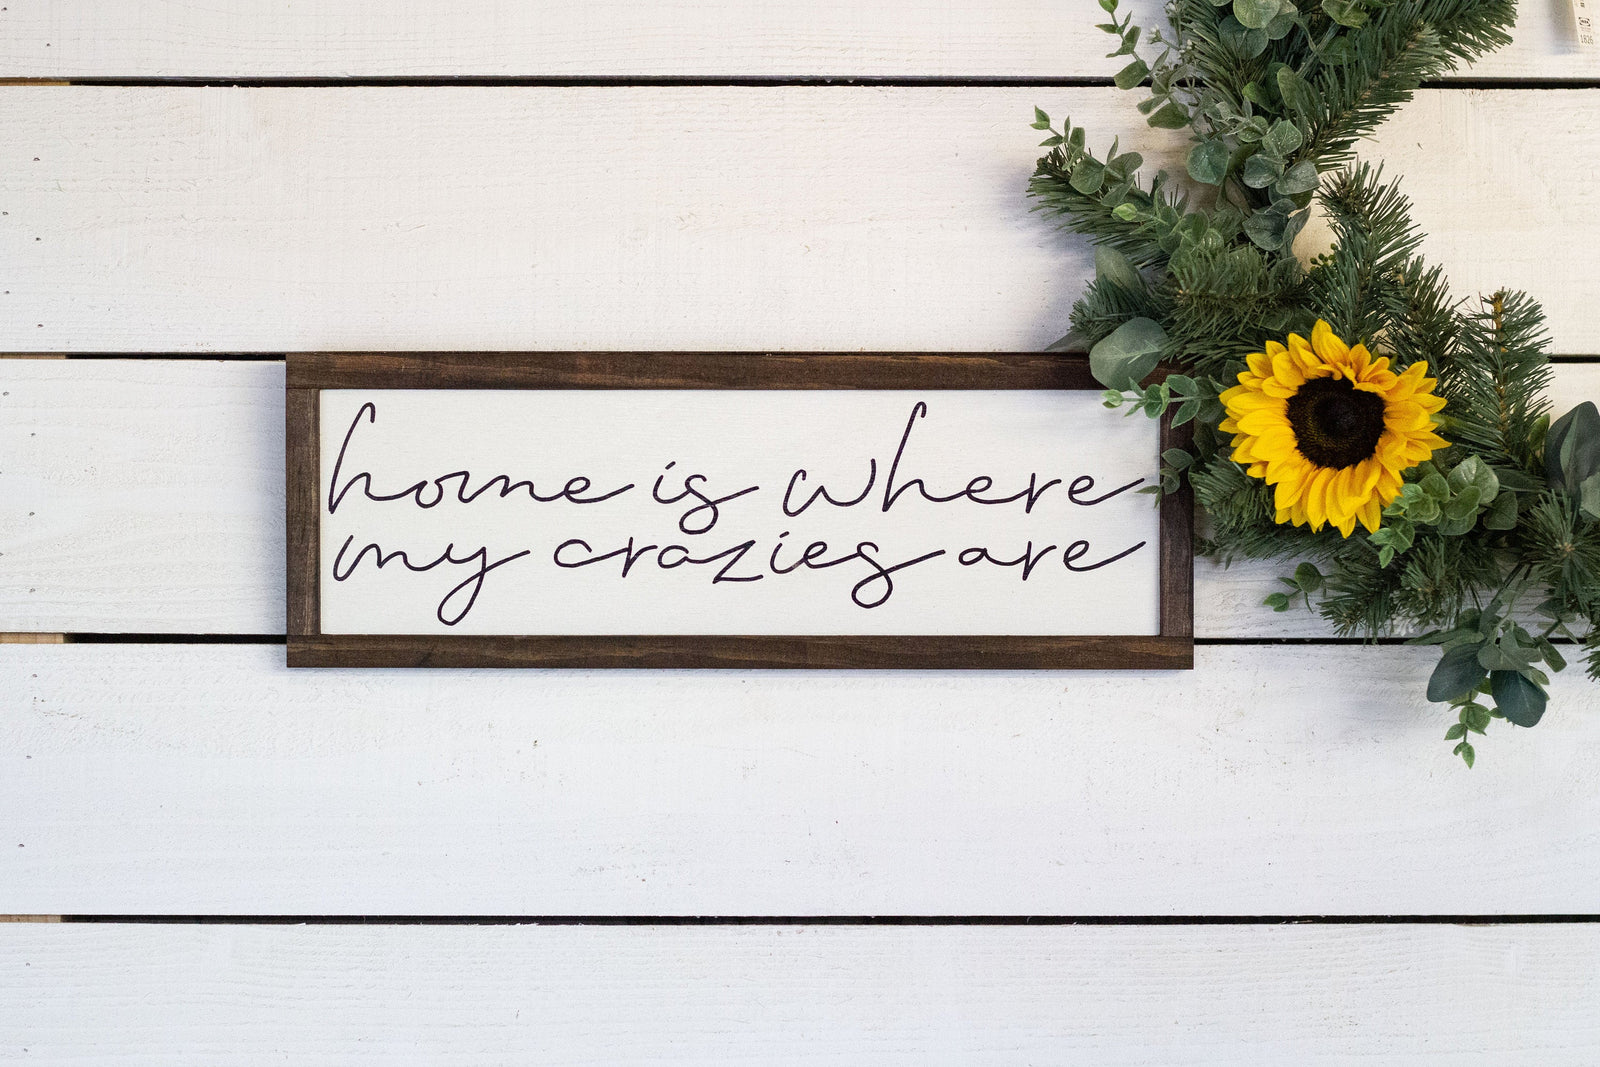 home is where
my crazies are
1826